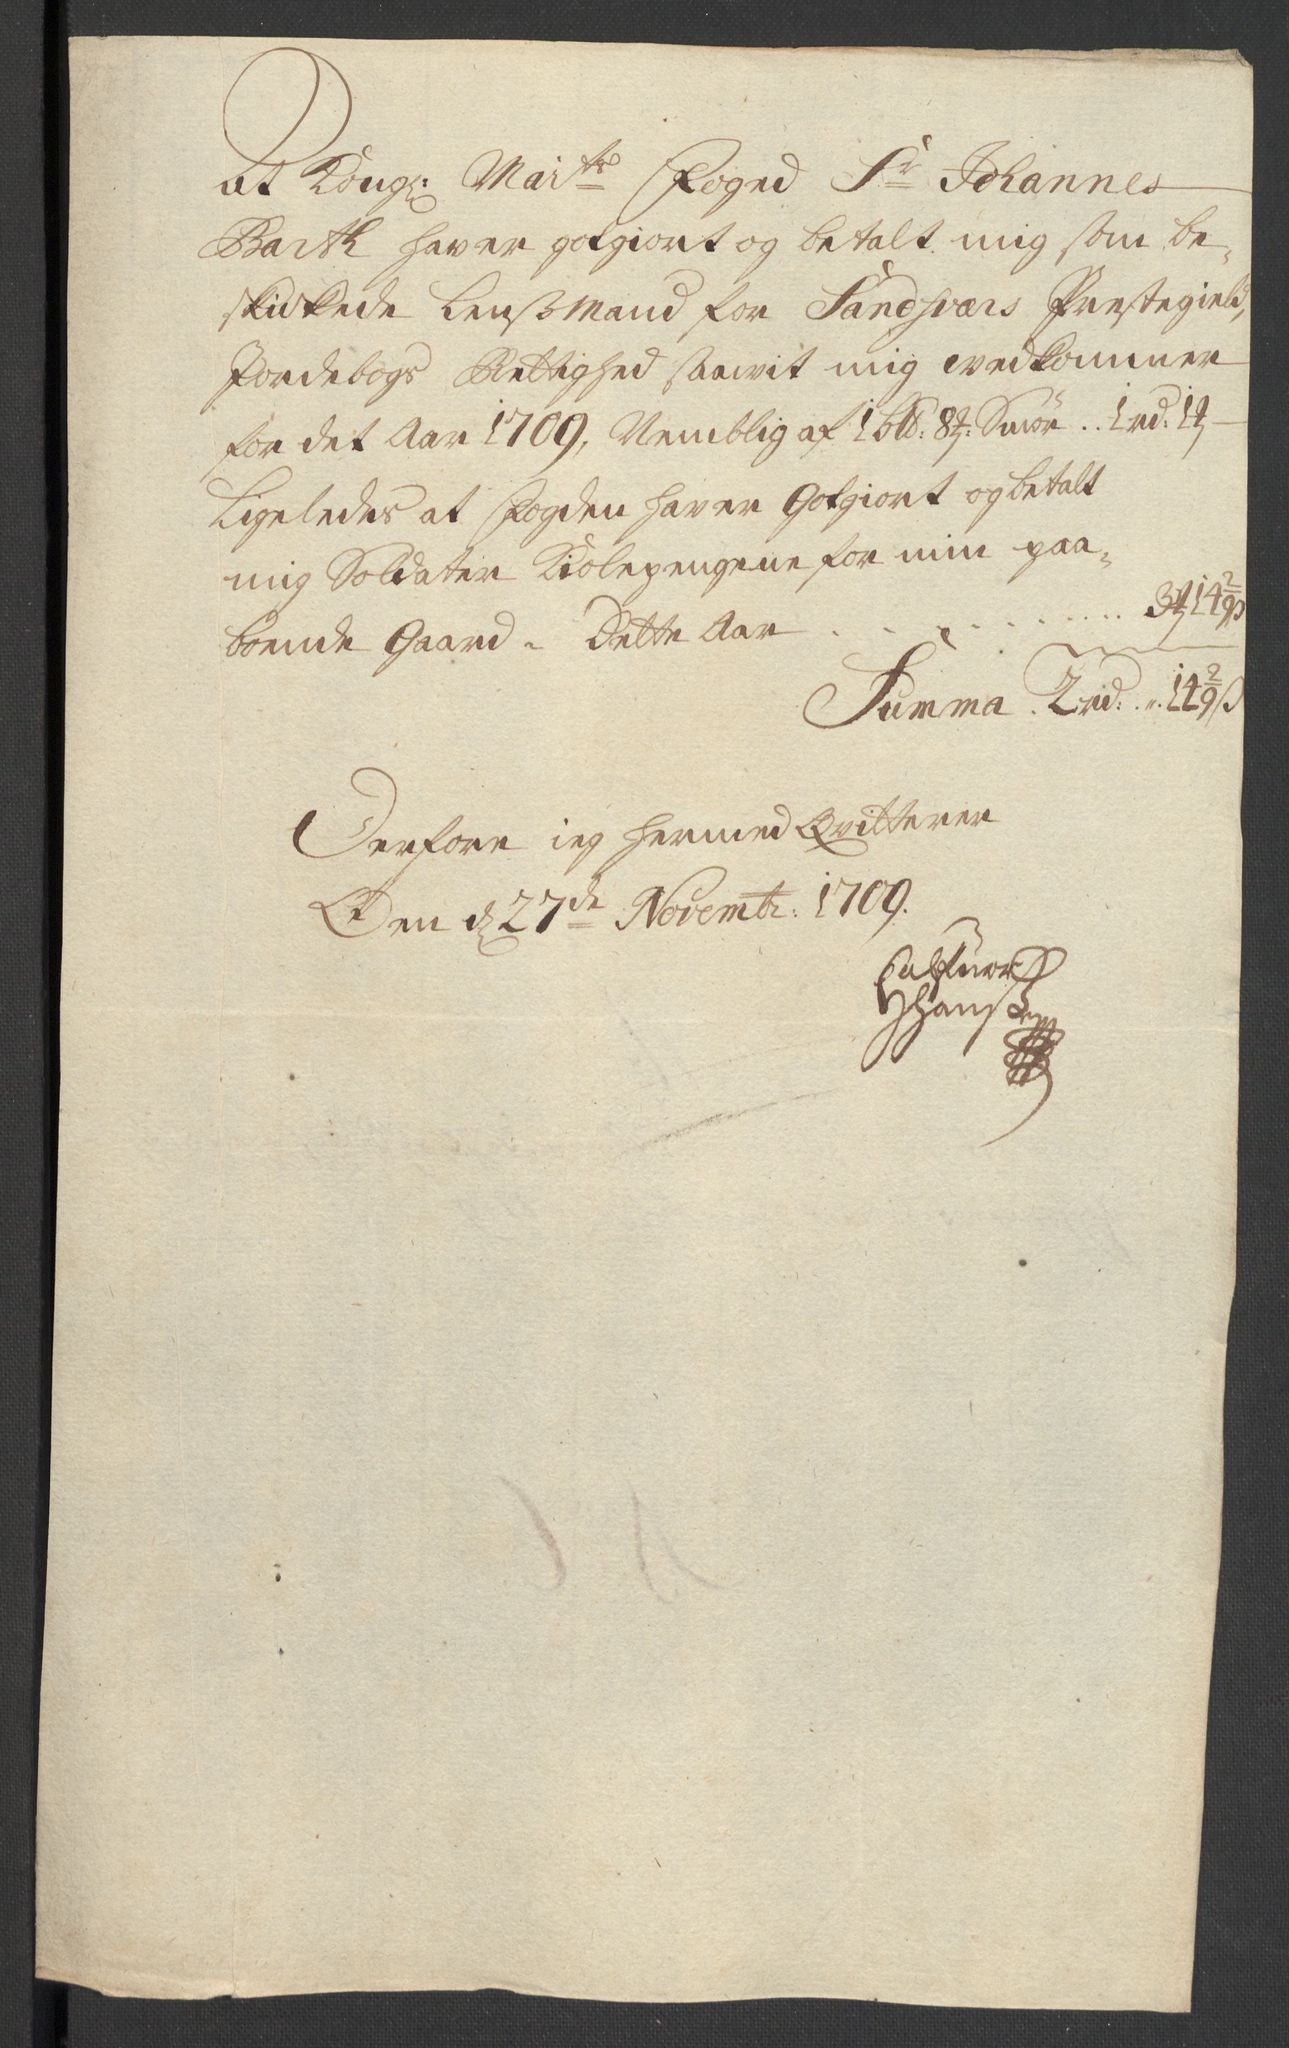 At Kongl: Mai:ts Foged Sr Johannes
Barth haver gotgiort og betalt mig som be-
skickede Lenßmand for Sandsværs Prestegield,
Jordebogs Rettighed saavit mig vedkommer
for det Aar 1709, Nemblig af 1 bld: 8 ꝑ: Smör .. 1 rd: 1 ꝑ
Ligeledes at Fogden haver Gotgiort og betalt
mig Soldater Kiolepengene for min paa-
boende Gaard - Dette Aar . . . . . . . . . . 3 ꝑ 14 2/9 ß
Summa . 2 rd: .. 14 2/9 ß
Derfore ieg hermed Qvitterer
Den 27de Novembr: 1709.
Hanß